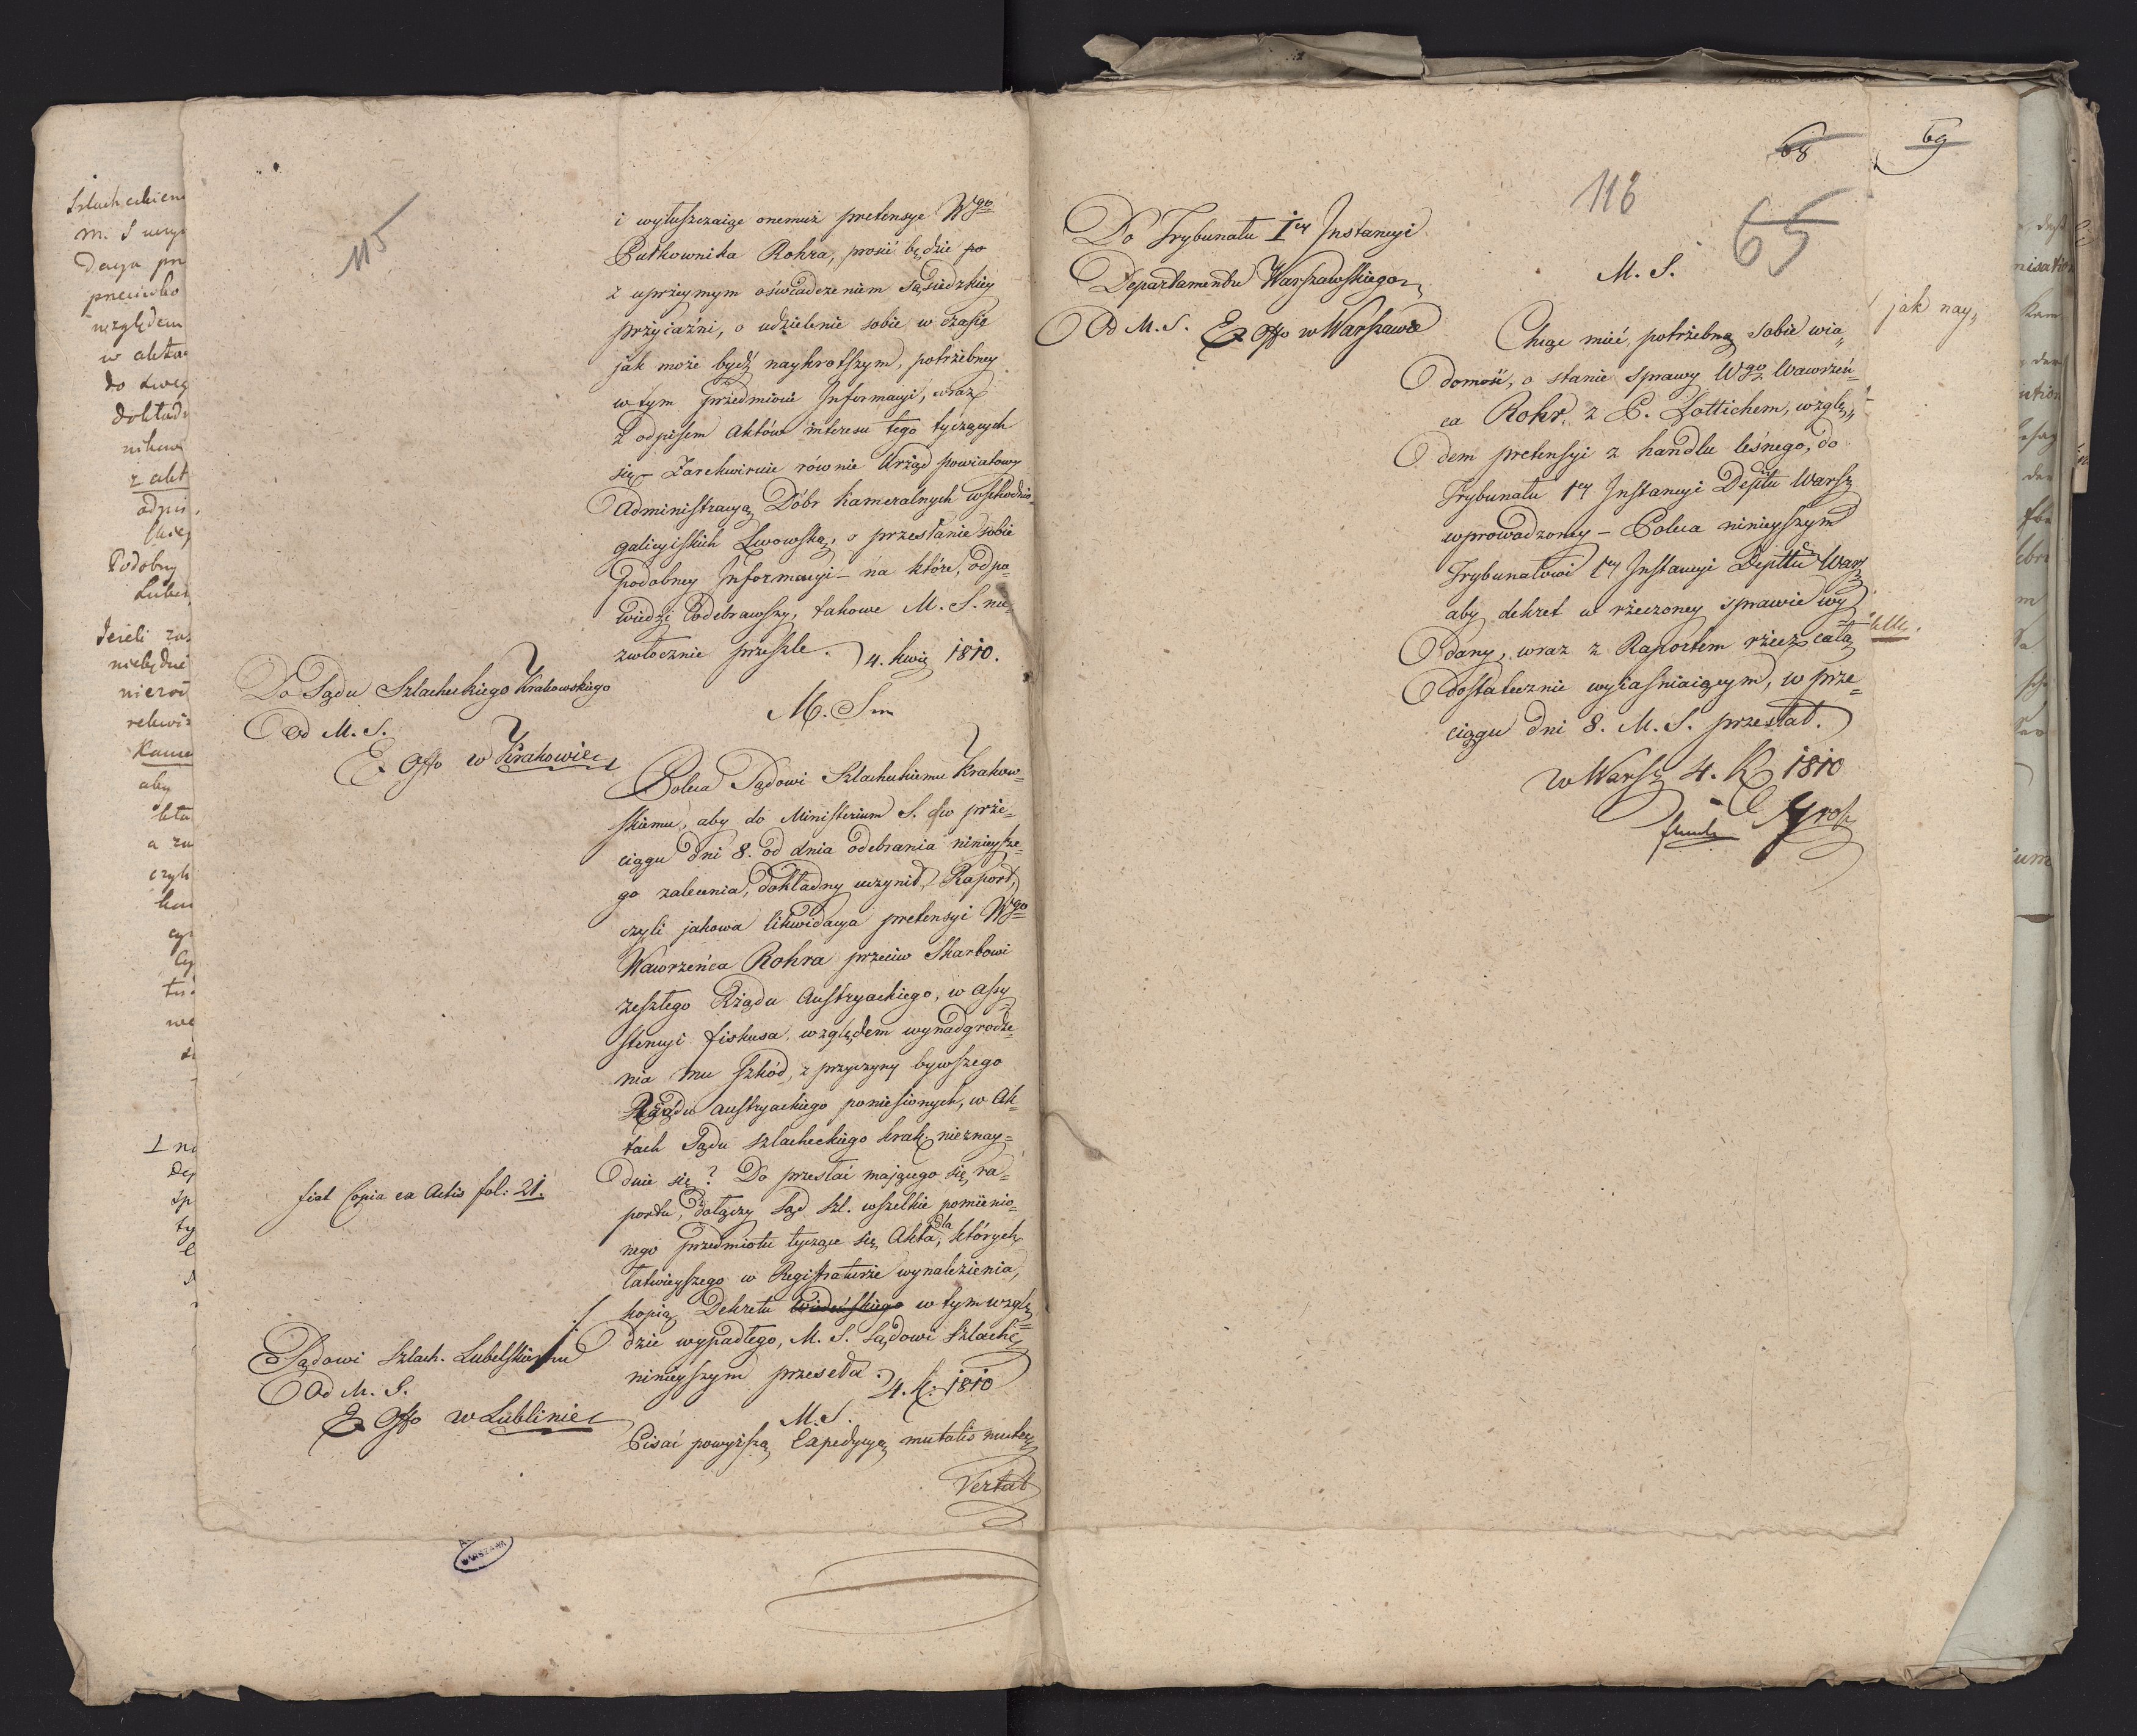 115
i wyłuszczaiąc onemuż pretensye Wgo
Pułkownika Rohra, prosić będzie
z uprzeymym oświadczeniem Sąsiedzkiey
przyiaźni, o udzielenie sobie w czasie
jak może bydź naykrotszym, potrzebney
w tym przedmiocie Informacyi, wraz
z odpisem Aktów interesu tego tyczących
się – Zarekwiruie równie Urząd powiatowy
Administracyą Dóbr Kameralnych wschodnio-
galicyiskich Lwowską, o przesłanie sobie
podobney Informacyi – na które, odpo-
wiedzi odebrawszy, takowe M. S. nie-
zwłocznie prześle. 4. kwię 1810.
Do Sądu Szlacheckiego Krakowskiego
Od M. S.
Ex Offo w Krakowie
M. S.
Poleca Sądowi Szlacheckiemu Krakow-
skiemu, aby do Ministerium S. w prze-
ciągu dni 8. od dnia odebrania ninieysze-
go zalecenia, dokładny uczynił Raport,
czyli jakowa likwidacya pretensyi Wgo
Wawrzeńca Rohra przeciw Skarbowi
zeszłego Rządu Austryackiego, w Assy-
stencyi fiskusa, względem wynadgrodze-
nia mu szkód, z przyczyny bywszego
Rządu Austryackiego poniesionych, w Ak-
tach Sądu szlacheckiego krak. nieznay-
duie się? Do przesłać mającego się, ra-
portu, dołączy Sąd Szl. wszelkie pomienio-
nego przedmiotu tyczące się Akta, dla których
łatwieyszego w Registraturze wynalezienia,
kopią Dekretu Wiedeńskiego w tym wzglę-
dzie wypadłego, M. S. Sądowi Szlache
ninieyszym przeseła. 4. K. 1810
fiat Copia ex Actis fol: 21.
Sądowi Szlach. Lubelskiemu
Od M. S.
Ex Offo w Lublinie
M. S.
Pisać powyższą Expedycyą mutatis mutan
Vertat
WARSZAWA
68
69
116
65
Do Trybunału Iey Instancyi
Departamentu Warszawskiego
Od M. S. Ex Offo w Warszawie
M. S.
jak nay„
Chcąc mieć, potrzebną sobie wia„
domość, o stanie sprawy Wgo Wawrzeń-
ca Rohr. z P. Lottichem, wzglę„
dem pretensyi z handlu leśnego, do
Trybunału 1ey Instancyi Deptu Warsz
wprowadzoney – Poleca ninieyszym
Trybunałowi 1ey Instancyi Deptu Warsz
aby dekret w rzeczoney sprawie wy-
dany, wraz z Raportem rzecz całą
dostatecznie wyiaśniaiącym, w prze-
ciągu dni 8. M. S. przesłał.
w Warsz 4. K 1810